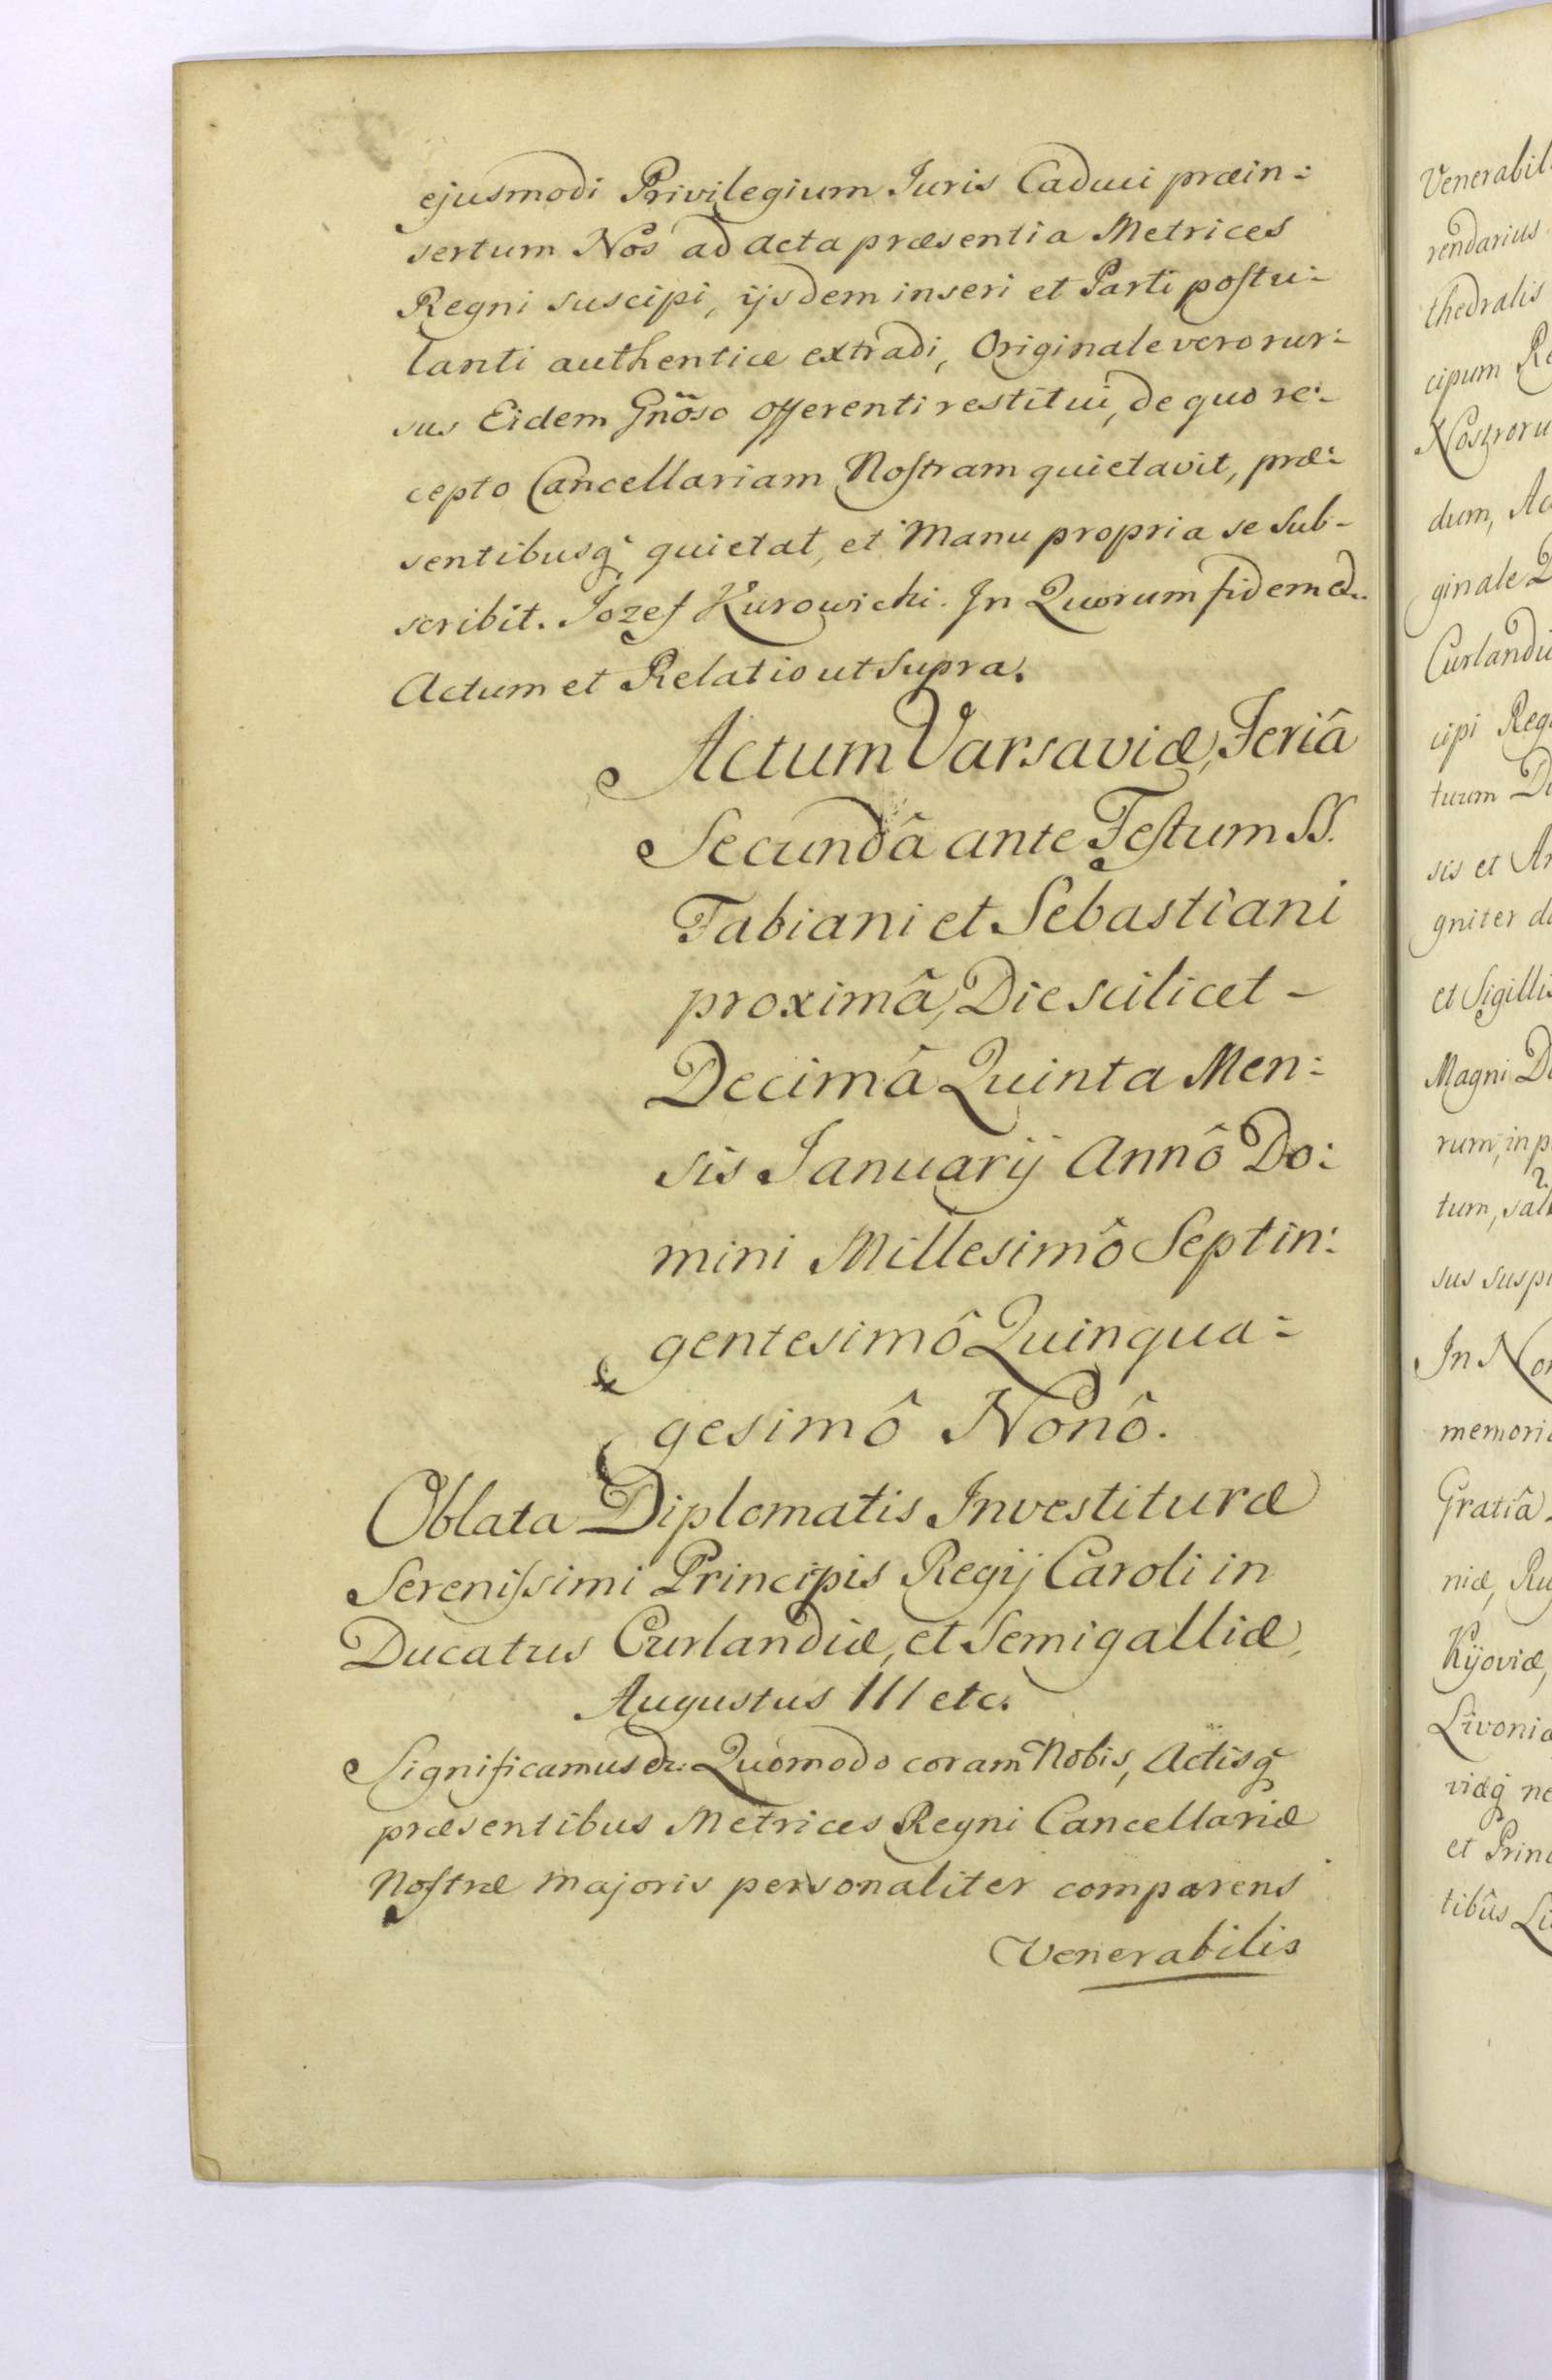 ejusmodi Privilegium Juris Caduci præin:
sertum Nos ad acta præsentia Metrices
Regni suscipi, ijsdem inseri et Parti postu:
lanti authentice extradi, Originale vero rur:
sus Eidem Gnõso offerenti restitui, de quo re:
cepto Cancellariam Nostram quietavit, præ:
sentibusq quietat, et Manu propria se Sub-
scribit. Jozef Kurowicki. In Quorum fidem etc.
Actum et Relatio ut Supra.
Actum Varsaviæ, Feriâ
Secundâ ante Festum SS.
Fabiani et Sebastiani
proximâ, Die scilicet -
Decimâ Quinta Men:
sis Januarij Annô Do:
mini Millesimô Septin:
gentesimô Quinqua:
gesimô Nonô.
Oblata Diplomatis Investituræ
Serenissimi Principis Regij Caroli in
Ducatus Curlandiæ, et Semigalliæ,
Augustus III etc.
Significamus etc: Quomodo coram Nobis, Actisq
præsentibus Metrices Regni Cancellariæ
Nostræ Majoris personaliter comparens
Venerabilis
Venerabil
rendarius
thedralis
cipum Re
Nostroru
dum, Ac
ginale Q
Curlandiæ
cipi Reg
turum Du
sis et Ar
gniter de
et Sigillis
Magni D
rum, in p
tum, sal
sus suspi
In No
memori
Gratiâ
niæ, Ru
Kijoviæ,
Livoniæ
viæq ne
et Princ
tibûs Li